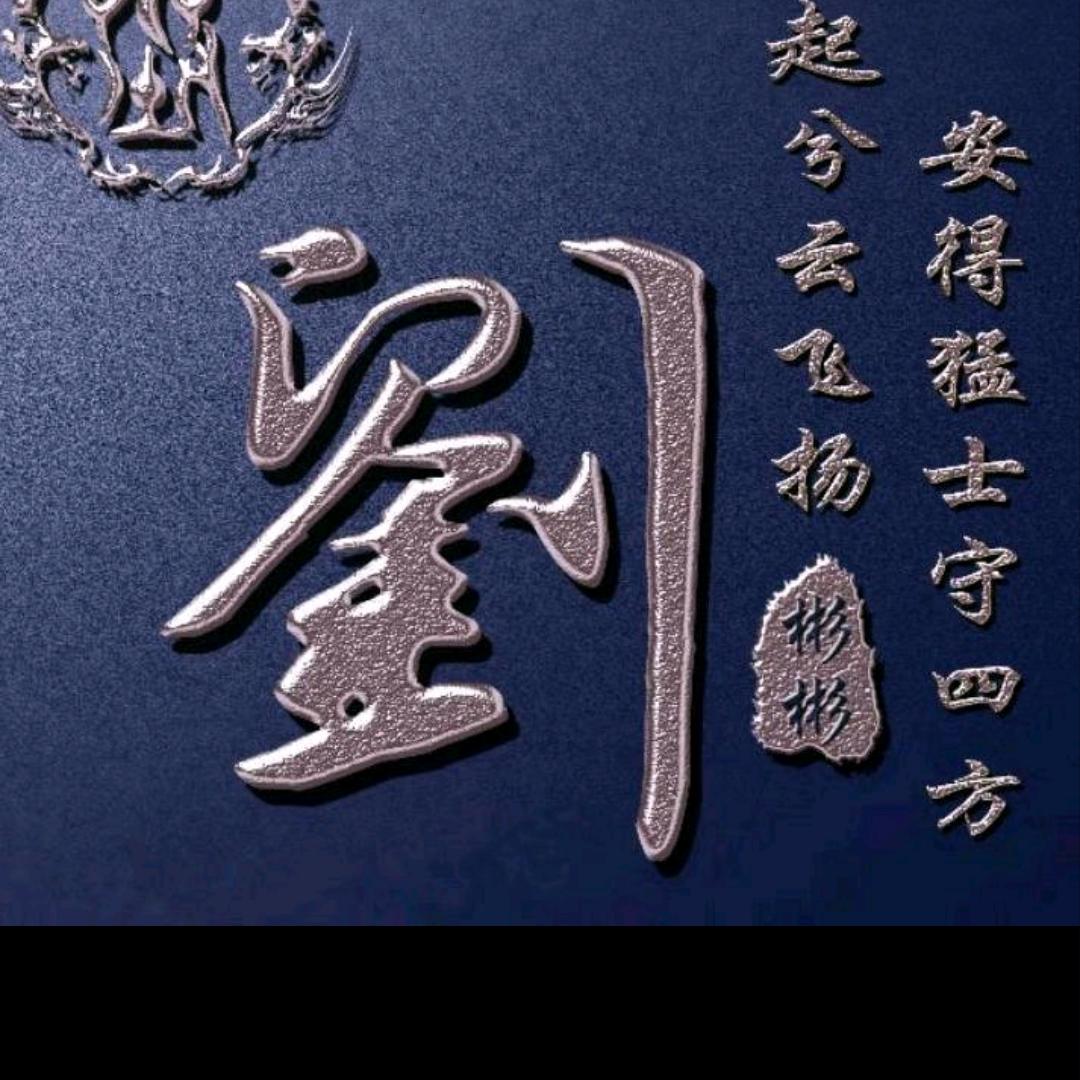 劉
起兮云飞扬
安得猛士守四方
彬彬